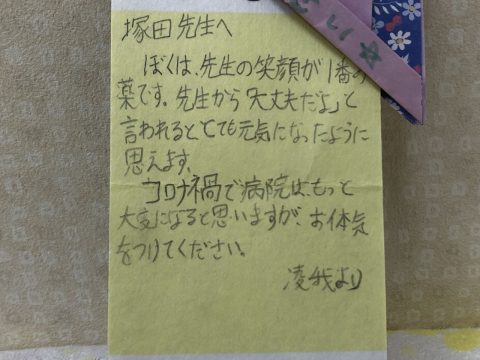 塚田先生へ
ぼくは、先生の笑顔が1番の
薬です。先生から「大丈夫だよ」と
言われると、とても元気になったように
思えます。
コロナ禍で病院は、もっと
大変になると思いますが、お体気
をつけてください。
凌我より